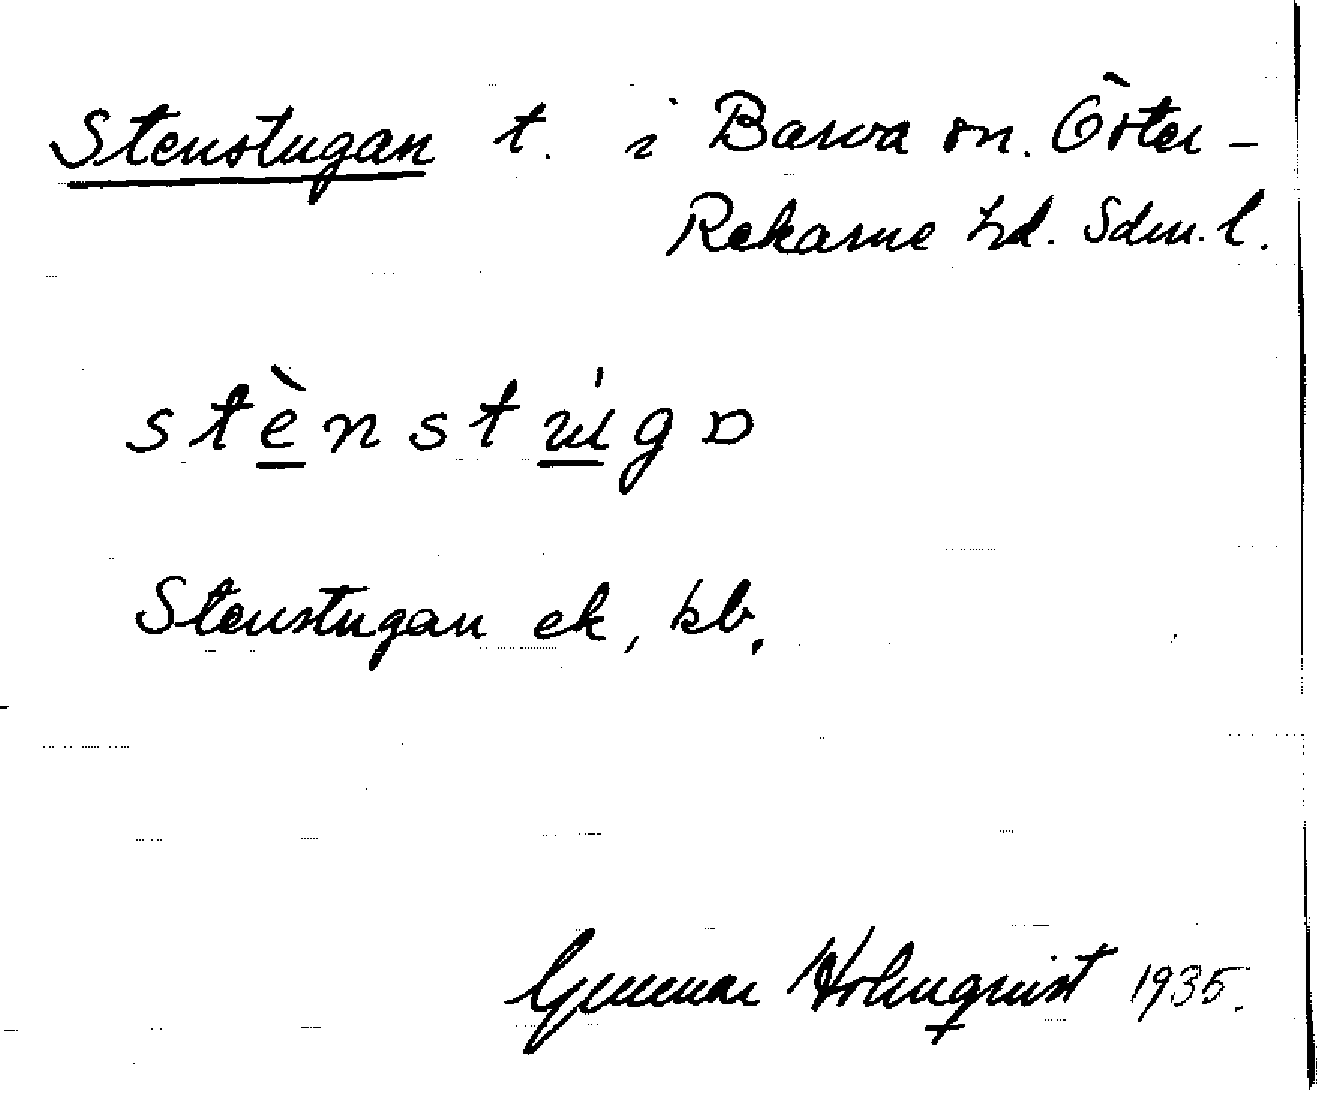 Stenstugan t. i Barva sn. Öster-
Rekarne hd. Sdm. l.
stènstúgɒ
Stenstugan ek, kb.
Gunnar Holmqvist 1935.